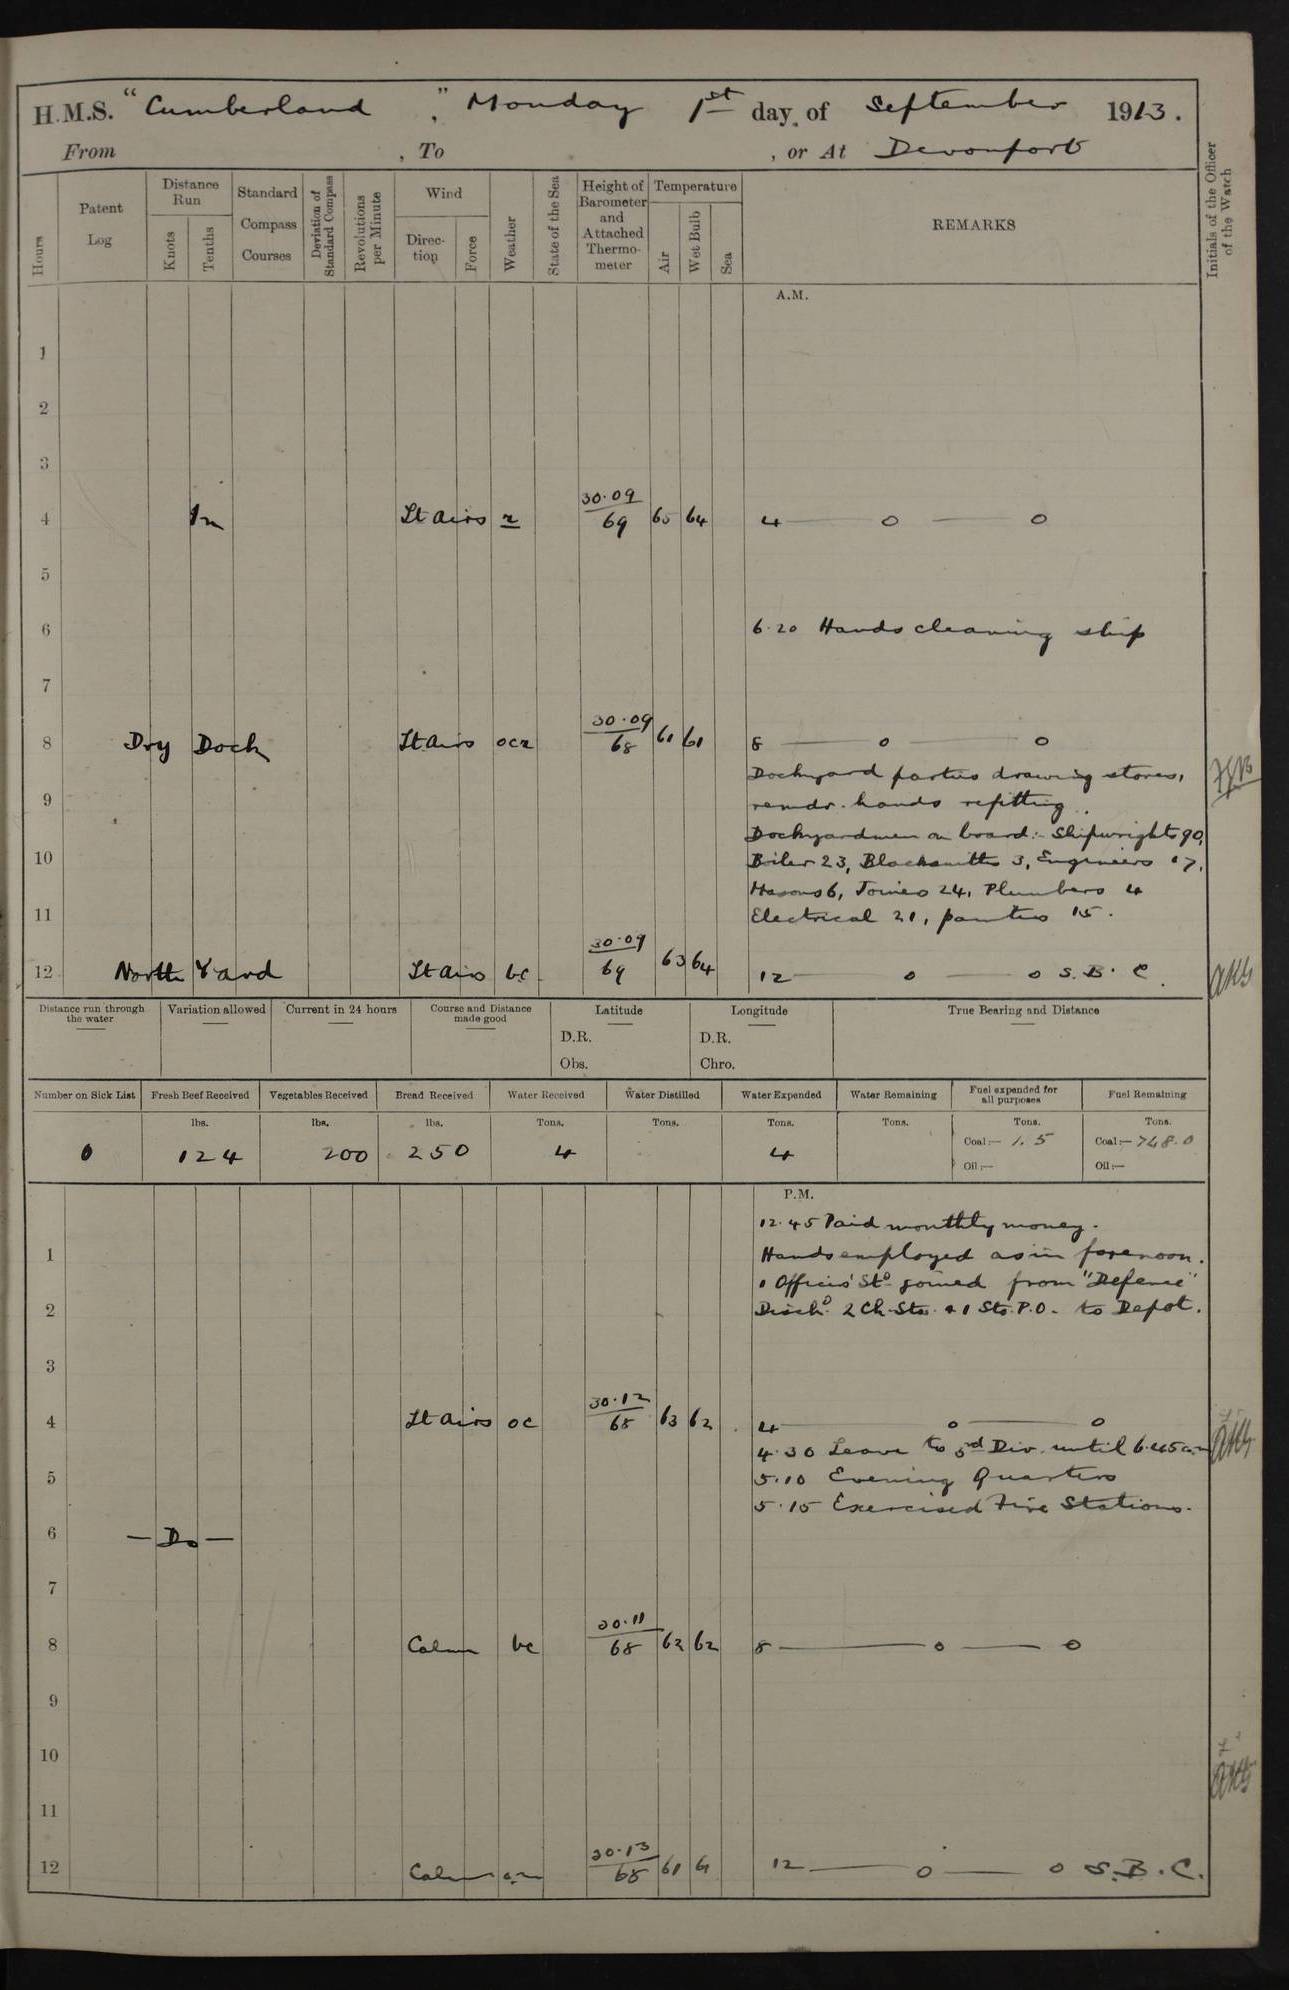 H.M.S. "Cumberland", Monday 1st day of September 1913.
From , To , or At Devonport
Hours
Patent Log
Distance Run
Knots
Tenths
Standard Compass Courses
Deviation of Standard Compass
Revolutions per Minute
Wind
Direction
Force
Weather
State of the Sea
Height of Barometer and Attached Thermometer
Temperature
Air
Wet Bulb
Sea
REMARKS
Initials of the Officer of the Watch
A.M.
1
2
3
4 In Lt airs r 30.09 69 65 64 4 — o — o
5
6 6.20 Hands cleaning ship
7
8 Dry Dock Lt airs ocr 30.09 68 61 61 8 — o — o
Dockyard parties drawing stores,
9 remdr. hands refitting.
Dockyardmen on board:- Shipwrights 90,
10 Boiler 23, Blacksmiths 3, Engineers 17,
Masons 6, Joiners 24, Plumbers 4
11 Electrical 21, painters 15.
12 North Yard Lt airs bc 30.09 69 63 64 12 — o — o S.B.C.
Distance run through the water
Variation allowed
Current in 24 hours
Course and Distance made good
Latitude
D.R.
Obs.
Longitude
D.R.
Chro.
True Bearing and Distance
Number on Sick List
Fresh Beef Received
Vegetables Received
Bread Received
Water Received
Water Distilled
Water Expended
Water Remaining
Fuel expended for all purposes
Fuel Remaining
lbs. lbs. lbs. Tons. Tons. Tons. Tons. Tons. Tons.
0 124 200 250 4 4 Coal:— 1.5 Coal:— 748.0
Oil:— Oil:—
P.M.
12.45 Paid monthly money.
1 Hands employed as in forenoon.
1 Officers' Std joined from "Defence"
2 Dischd. 2 Ch. Sto. & 1 Sto. P.O. to Depot.
3
4 Lt airs oc 30.12 68 63 62 4 — o — o
4.30 Leave to 3rd Div. until 6.45 am
5 5.10 Evening Quarters
5.15 Exercised Fire Stations.
6 — Do —
7
8 Calm bc 30.11 68 62 62 8 — o — o
9
10
11
12 Calm 30.13 68 61 12 — o — o S.B.C.